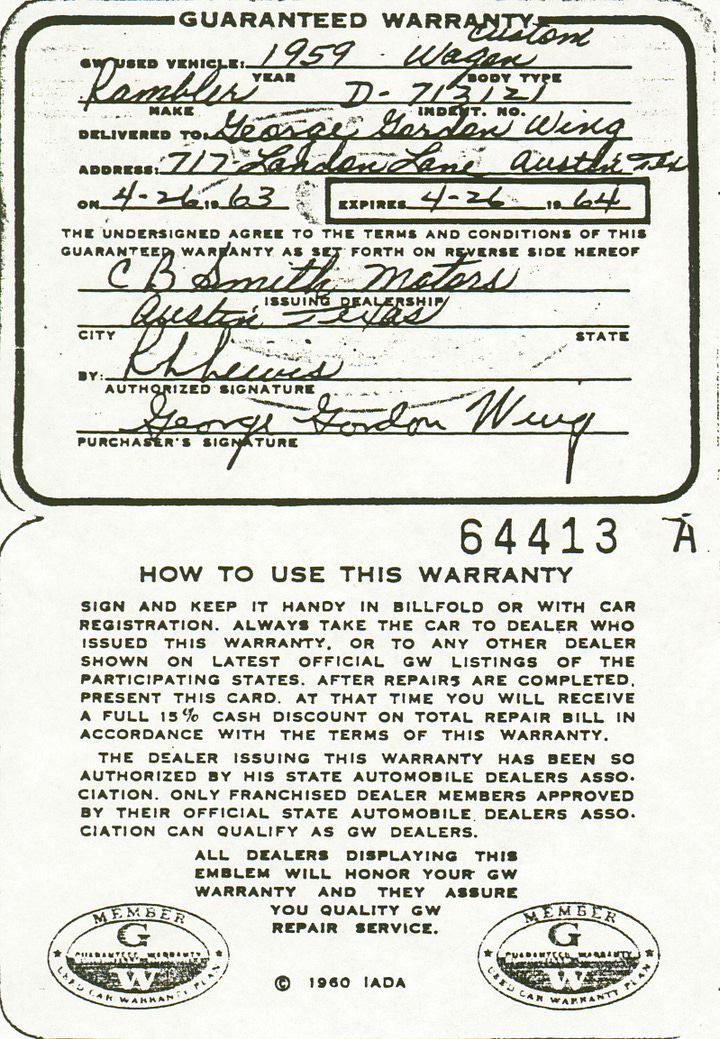 GUARANTEED WARRANTY
Custom
GW USED VEHICLE: 1959 Wagon
YEAR BODY TYPE
Rambler D-713121
MAKE INDENT. NO.
DELIVERED TO: George Gordon Wing
ADDRESS: 717 Landon Lane Austin Tex
ON 4-26 19 63 EXPIRES 4-26 19 64
THE UNDERSIGNED AGREE TO THE TERMS AND CONDITIONS OF THIS
GUARANTEED WARRANTY AS SET FORTH ON REVERSE SIDE HEREOF
C B Smith Motors
ISSUING DEALERSHIP
Austin Texas
CITY STATE
BY:
AUTHORIZED SIGNATURE
George Gordon Wing
PURCHASER'S SIGNATURE
64413 A
HOW TO USE THIS WARRANTY
SIGN AND KEEP IT HANDY IN BILLFOLD OR WITH CAR
REGISTRATION. ALWAYS TAKE THE CAR TO DEALER WHO
ISSUED THIS WARRANTY, OR TO ANY OTHER DEALER
SHOWN ON LATEST OFFICIAL GW LISTINGS OF THE
PARTICIPATING STATES. AFTER REPAIRS ARE COMPLETED,
PRESENT THIS CARD. AT THAT TIME YOU WILL RECEIVE
A FULL 15% CASH DISCOUNT ON TOTAL REPAIR BILL IN
ACCORDANCE WITH THE TERMS OF THIS WARRANTY.
THE DEALER ISSUING THIS WARRANTY HAS BEEN SO
AUTHORIZED BY HIS STATE AUTOMOBILE DEALERS ASSO-
CIATION. ONLY FRANCHISED DEALER MEMBERS APPROVED
BY THEIR OFFICIAL STATE AUTOMOBILE DEALERS ASSO-
CIATION CAN QUALIFY AS GW DEALERS.
ALL DEALERS DISPLAYING THIS
EMBLEM WILL HONOR YOUR GW
WARRANTY AND THEY ASSURE
YOU QUALITY GW
REPAIR SERVICE.
MEMBER
G
GUARANTEED WARRANTY
W
USED CAR WARRANTY PLAN
MEMBER
G
GUARANTEED WARRANTY
W
USED CAR WARRANTY PLAN
© 1960 IADA